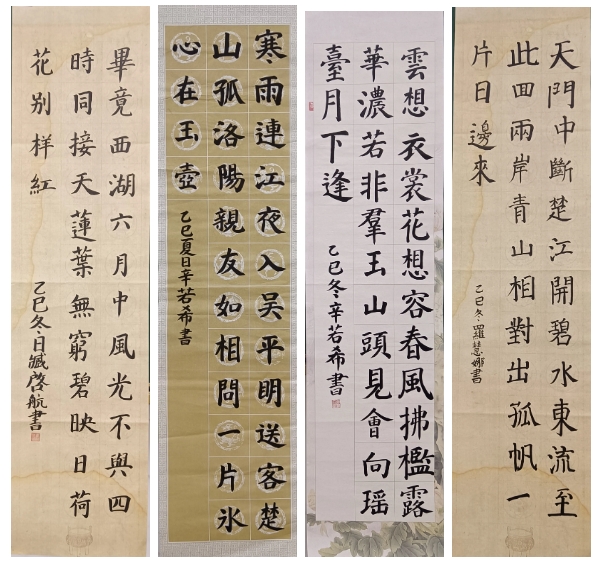 畢竟西湖六月中風光不與四
時同接天蓮葉無窮碧映日荷
花别样紅
乙巳冬日臧啓航書
寒雨連江夜入吴平明送客楚
山孤洛陽親友如相問一片氷
心在玉壺
乙巳夏日辛若希書
雲想衣裳花想容春風拂檻露
華濃若非羣玉山頭見會向瑶
臺月下逢
乙巳冬辛若希書
天門中斷楚江開碧水東流至
此回兩岸青山相對出孤帆一
片日邊來
乙巳冬羅慧娜書